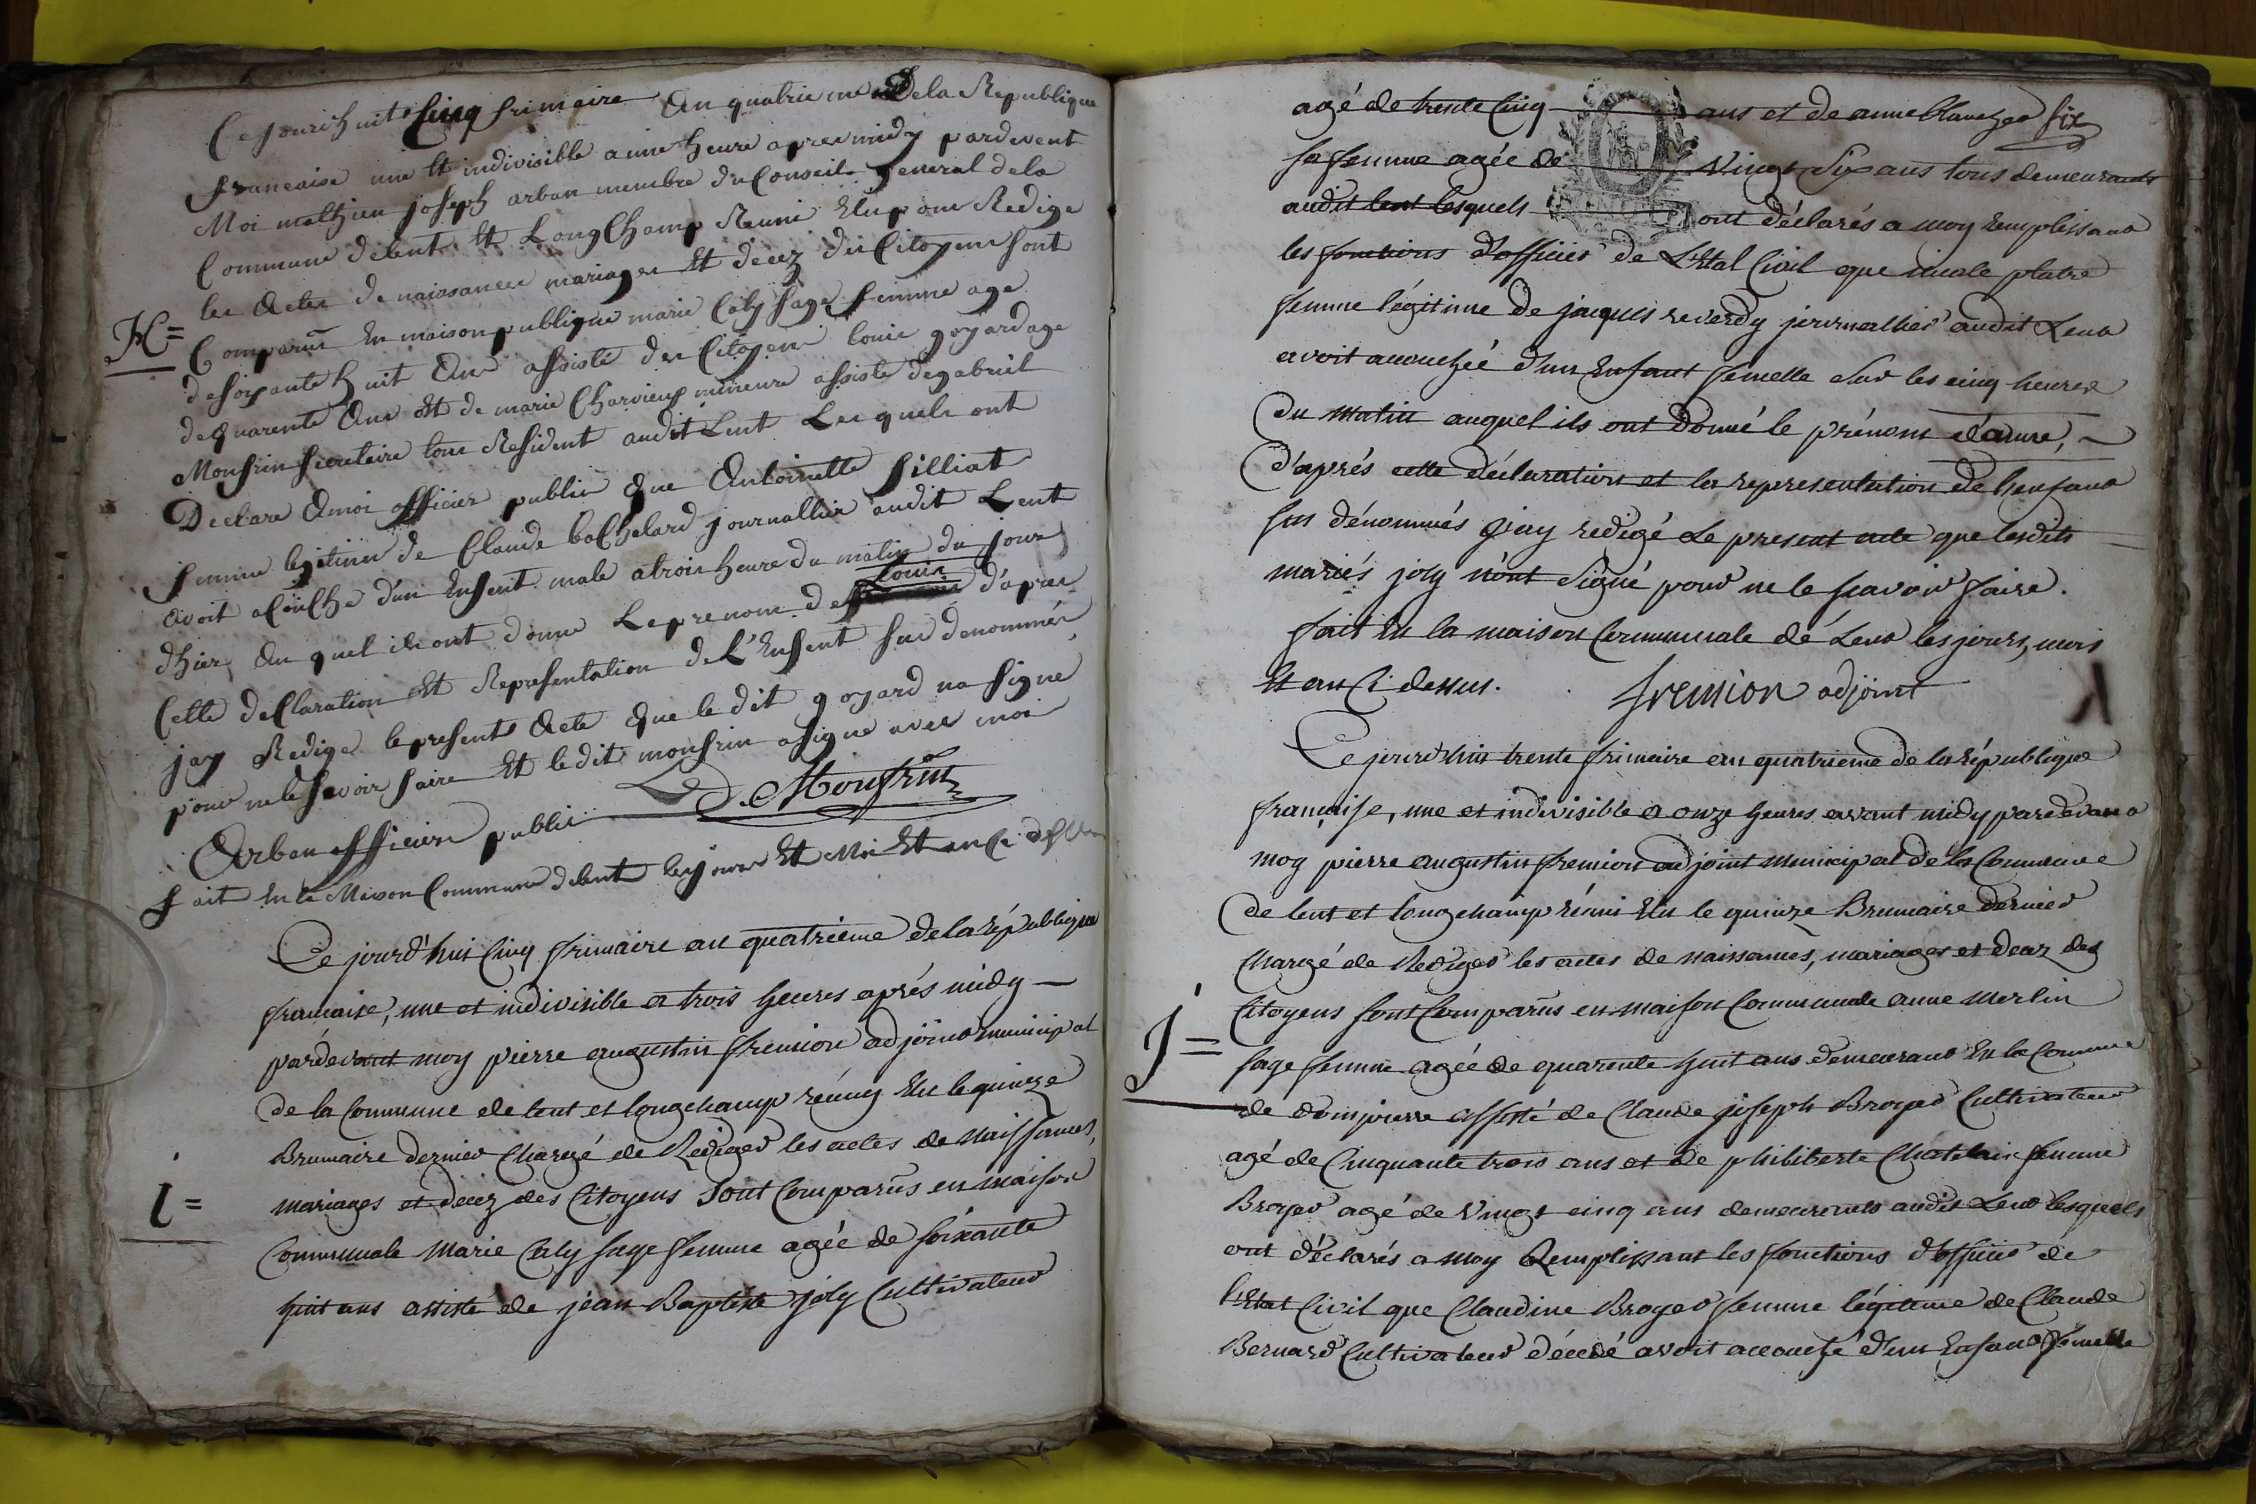 Ce jourdhuit Cinq frimaire An quatrieme De la Republique
francaise une Et indivisible a une heure apres midy pardevent
Moi mathieu joseph arban membre du Conseil general de la
Commune delent Et LongChamp Reuni Elu pour Redige
les Actes de naissances mariages Et decez des Citoyens sont
H=
Comparut En maison publique marie Caly sage femme age
desoixante huit Ans assisté des Citoyens louis goyard age
dequarente Ans Et de marie Charvieux mineure assiste degabriel
Monfrin secretaire tous Resident audit Lent Lesquels ont
Declare Amoi officier public que Antoinette filliat
femme legitime de Claude baChelard journallier audit Lent
avoit acouChé d'un Enfent male a trois heure du matin du jour
louis
dhier Au quel ils ont donne Le prenom de d'apres
Cette deClaration Et Representation de L'Enfent sus denommés
jay Redige lepresent Acte que le dit goyard na signe
pour ne le savoir faire Et ledit monfrin a signe avec moi
Arban officier public DeMonfrin
fait En la Maison Commune delent les jours Et Moi Et an Ci dessus
Ce jourd'huis Cinq frimaire an quatrieme de la république
francaise, une et indivisible a trois heures aprés midy
pardevant moy pierre augustin fremion adjoint municipal
de la Commune de lent et longchamp réunis Elu le quinze
Brumaire dernier Chargé de Rediger les actes de Naissances,
i=
mariages et décez des Citoyens Sont Comparus en maison
Communale Marie Caly sage femme agée de soixante
huit ans assisté de jean Baptiste joly Cultivateur
agé de trente Cinq ans et de anne blanchet six
sa femme agée de Vingt Six ans tous demeurants
audit lent lesquels ont déclarés a moy remplissant
les fonctions d'officier de L'Etat Civil que nicole platre
femme légitime de jaques reverdy journallier audit Lent
avoit accouchée d'un Enfant femelle Sur les cinq heures
du matin auquel ils ont donné le prénom d'anne,
d'aprés cette déclaration et la representation de l'enfant
sus dénommés j'ay redigé Le present acte que lesdits
mariés joly n'ont Signé pour ne le scavoir faire.
fait En la maison Communale dé Lent les jours, mois
Et an Ci dessus. fremion adjoint
Ce jourd'huis trente frimaire an quatrieme de la république
française, une et indivisible a onze heures avant midy pardevant
moy pierre augustin fremion adjoint municipal de la Commune
de lent et longchamp réunis Elu le quinze Brumaire dernier
Chargé de Rediger les actes de naissances, mariages et decez des
Citoyens sont Comparus en maison Communale anne merlin
j=
sage femme agée de quarante huit ans demeurant En la Commune
de dompierre assisté de Claude joseph Broyer Cultivateur
agé de Cinquante trois ans et de philiberte Chatelain femme
Broyer agé de Vingt cinq ans demeurants audit Lent lesquels
ont déclarés a moy Remplissant les fonctions d'officier dé
l'Etat Civil que Claudine Broyer femme légitime de Claude
Bernard Cultivateur décédé avoit accouché d'un Enfant femelle